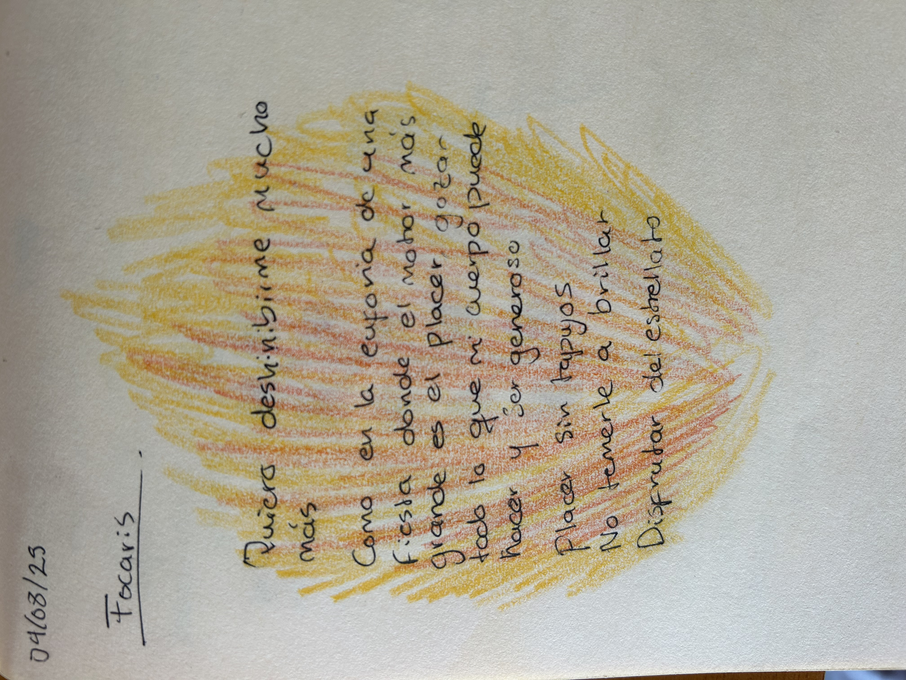 04/03/25
Focaris.
Quiero deshinibirme mucho
más
Como en la euforia de una
fiesta donde el motor más
grande es el placer gozar
todo lo que mi cuerpo puede
hacer y ser generoso
Placer sin tapujos
No temerle a brillar
Disfrutar del estrellato